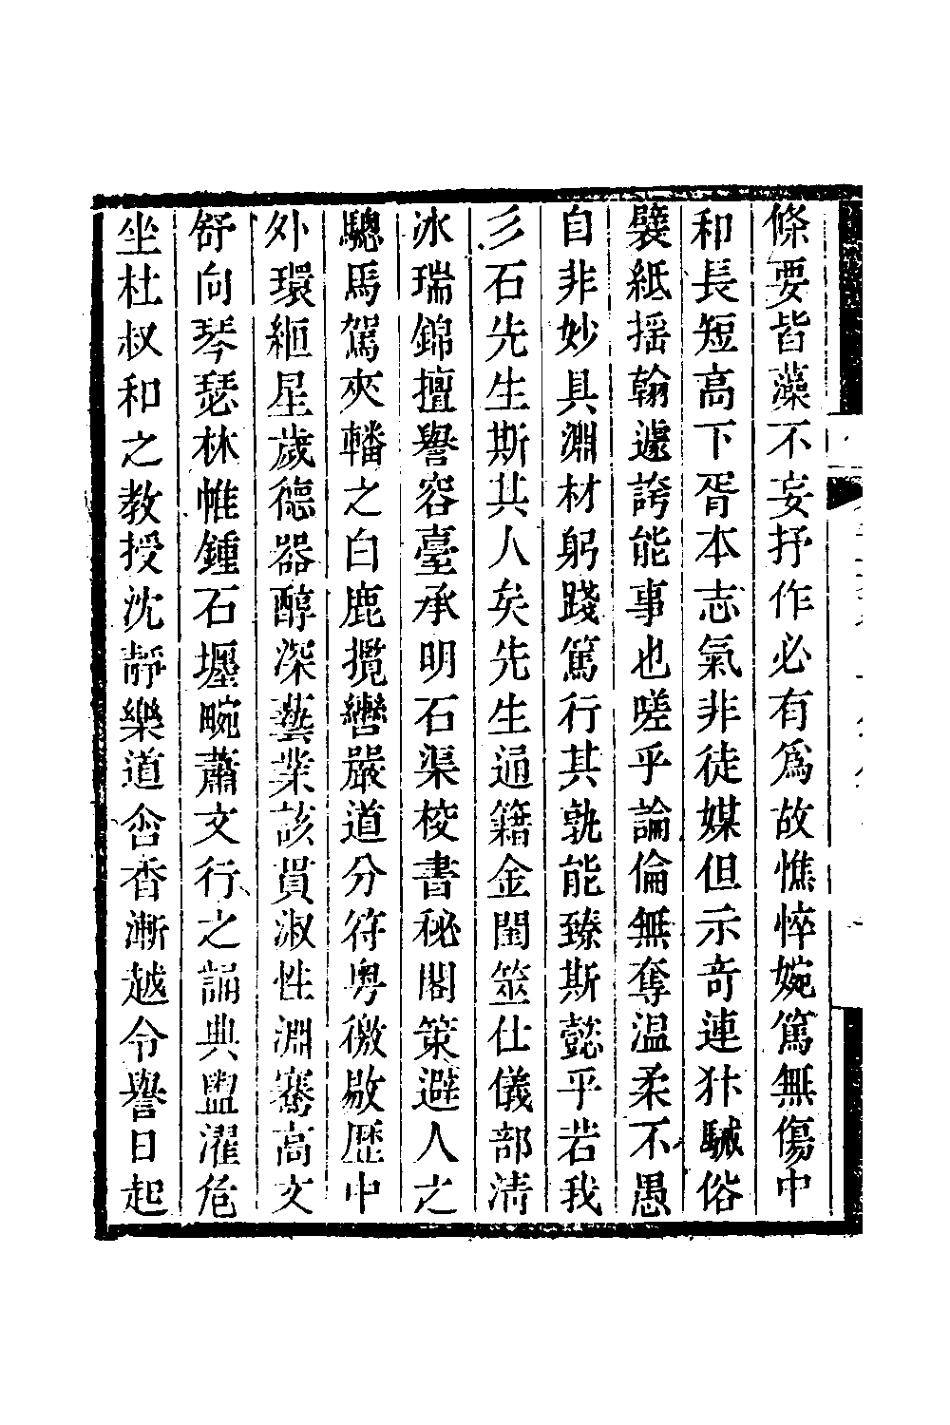 條要皆藻不妄抒作必有爲故憔悴婉篤無傷中
和長短高下胥本志氣非徒媒但示奇連犿駴俗
襞紙摇翰遽誇能事也嗟乎論倫無奪温柔不愚
自非妙具淵材躬踐篤行其孰能臻斯懿乎若我
彡石先生斯其人矣先生通籍金閨筮仕儀部清
冰瑞錦擅譽容臺承明石渠校書秘閣策避人之
驄馬駕夾轓之白鹿攬轡嚴道分符粤徼敭歴中
外環絙星歲德器醇深藝業該貫淑性淵騫高文
舒向琴瑟林帷鍾石壥畹蕭文行之誦典盥濯危
坐杜叔和之教授沈靜樂道含香漸越令譽日起